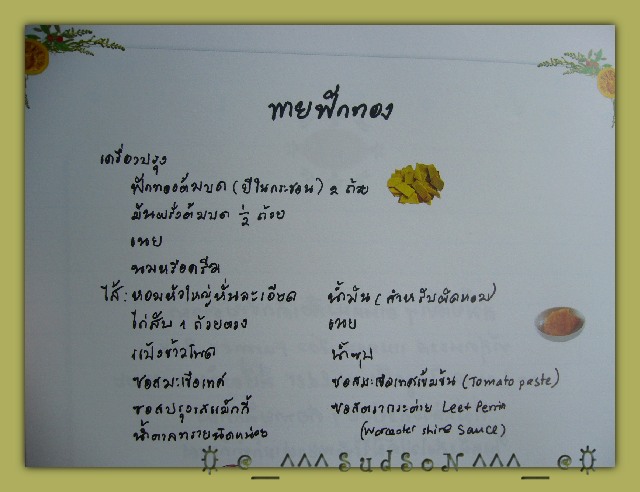 พายฟักทอง
เครื่องปรุง
ฟักทองต้มบด (ยีในกระชอน) 2 ถ้วย
มันฝรั่งต้มบด 1/2 ถ้วย
เนย
นมหรือครีม
ไส้ : หอมหัวใหญ่หั่นละเอียด น้ำมัน (สำหรับผัดหอม)
ไก่สับ 1 ถ้วยตวง เนย
แป้งข้าวโพด น้ำซุป
ซอสมะเขือเทศ ซอสมะเขือเทศเข้มข้น (Tomato paste)
ซอสปรุงรสแม็กกี้ ซอสตรากระต่าย Leet Perrin
น้ำตาลทรายนิดหน่อย (Worcester shire Sauce)
@__^^^ SudSoN ^^^__@